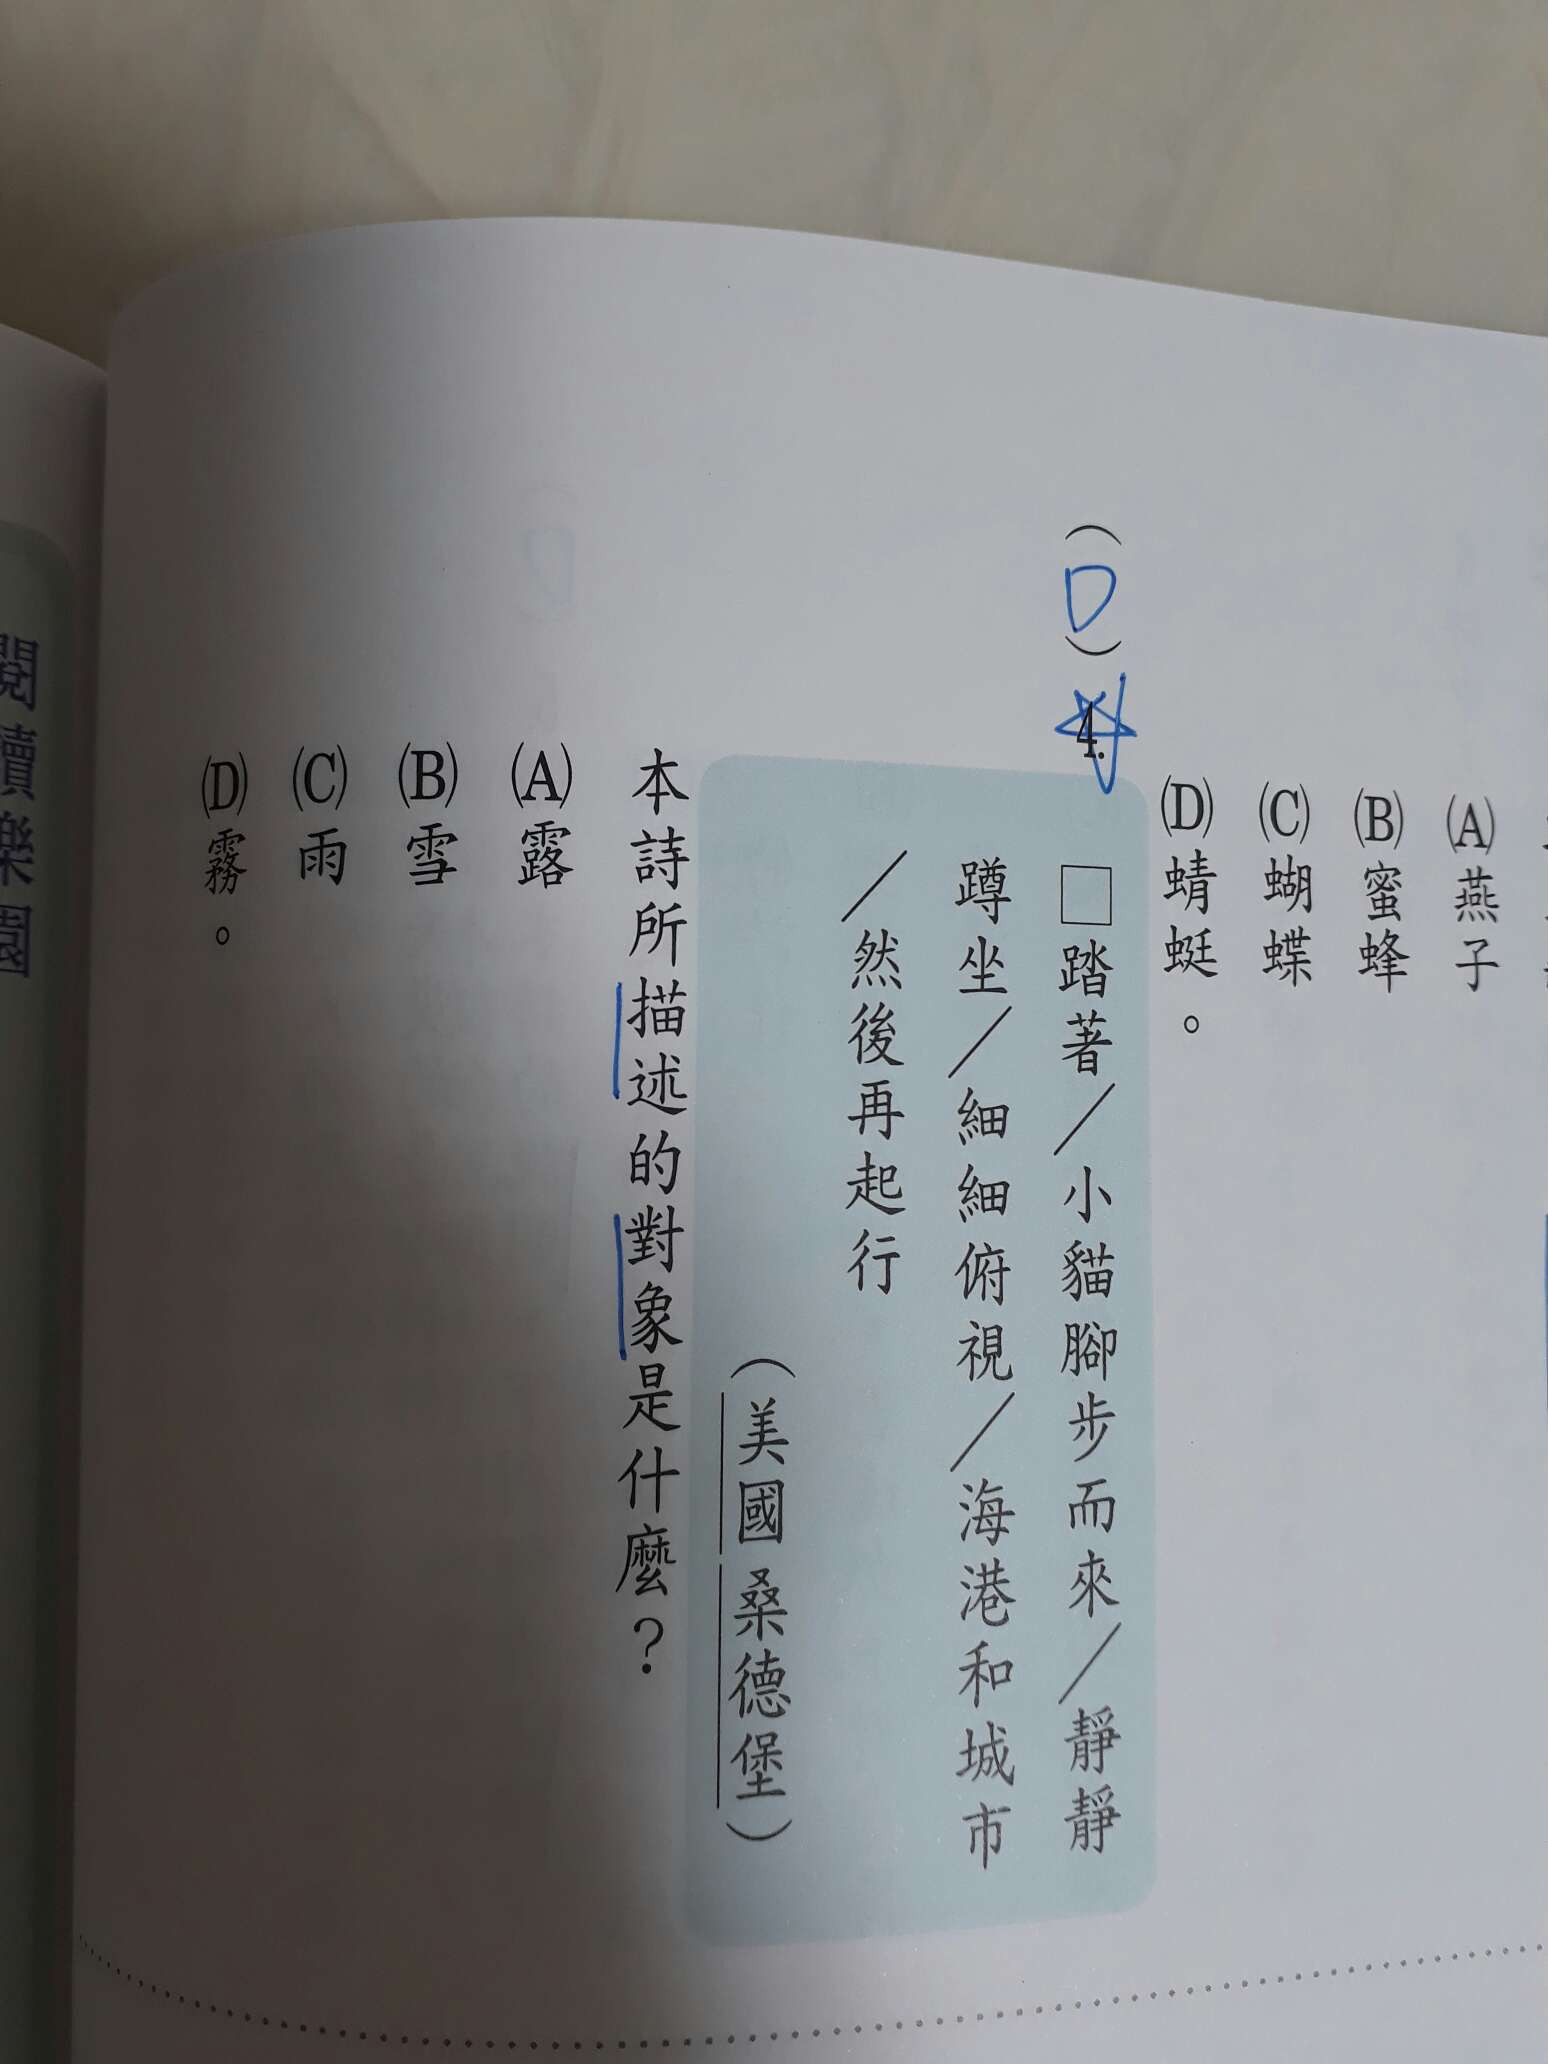 (A)燕子
(B)蜜蜂
(C)蝴蝶
(D)蜻蜓。
(D)4.
□踏著／小貓腳步而來／靜靜
蹲坐／細細俯視／海港和城市
／然後再起行
（美國 桑德堡）
本詩所描述的對象是什麼？
(A)露
(B)雪
(C)雨
(D)霧。
閱讀樂園